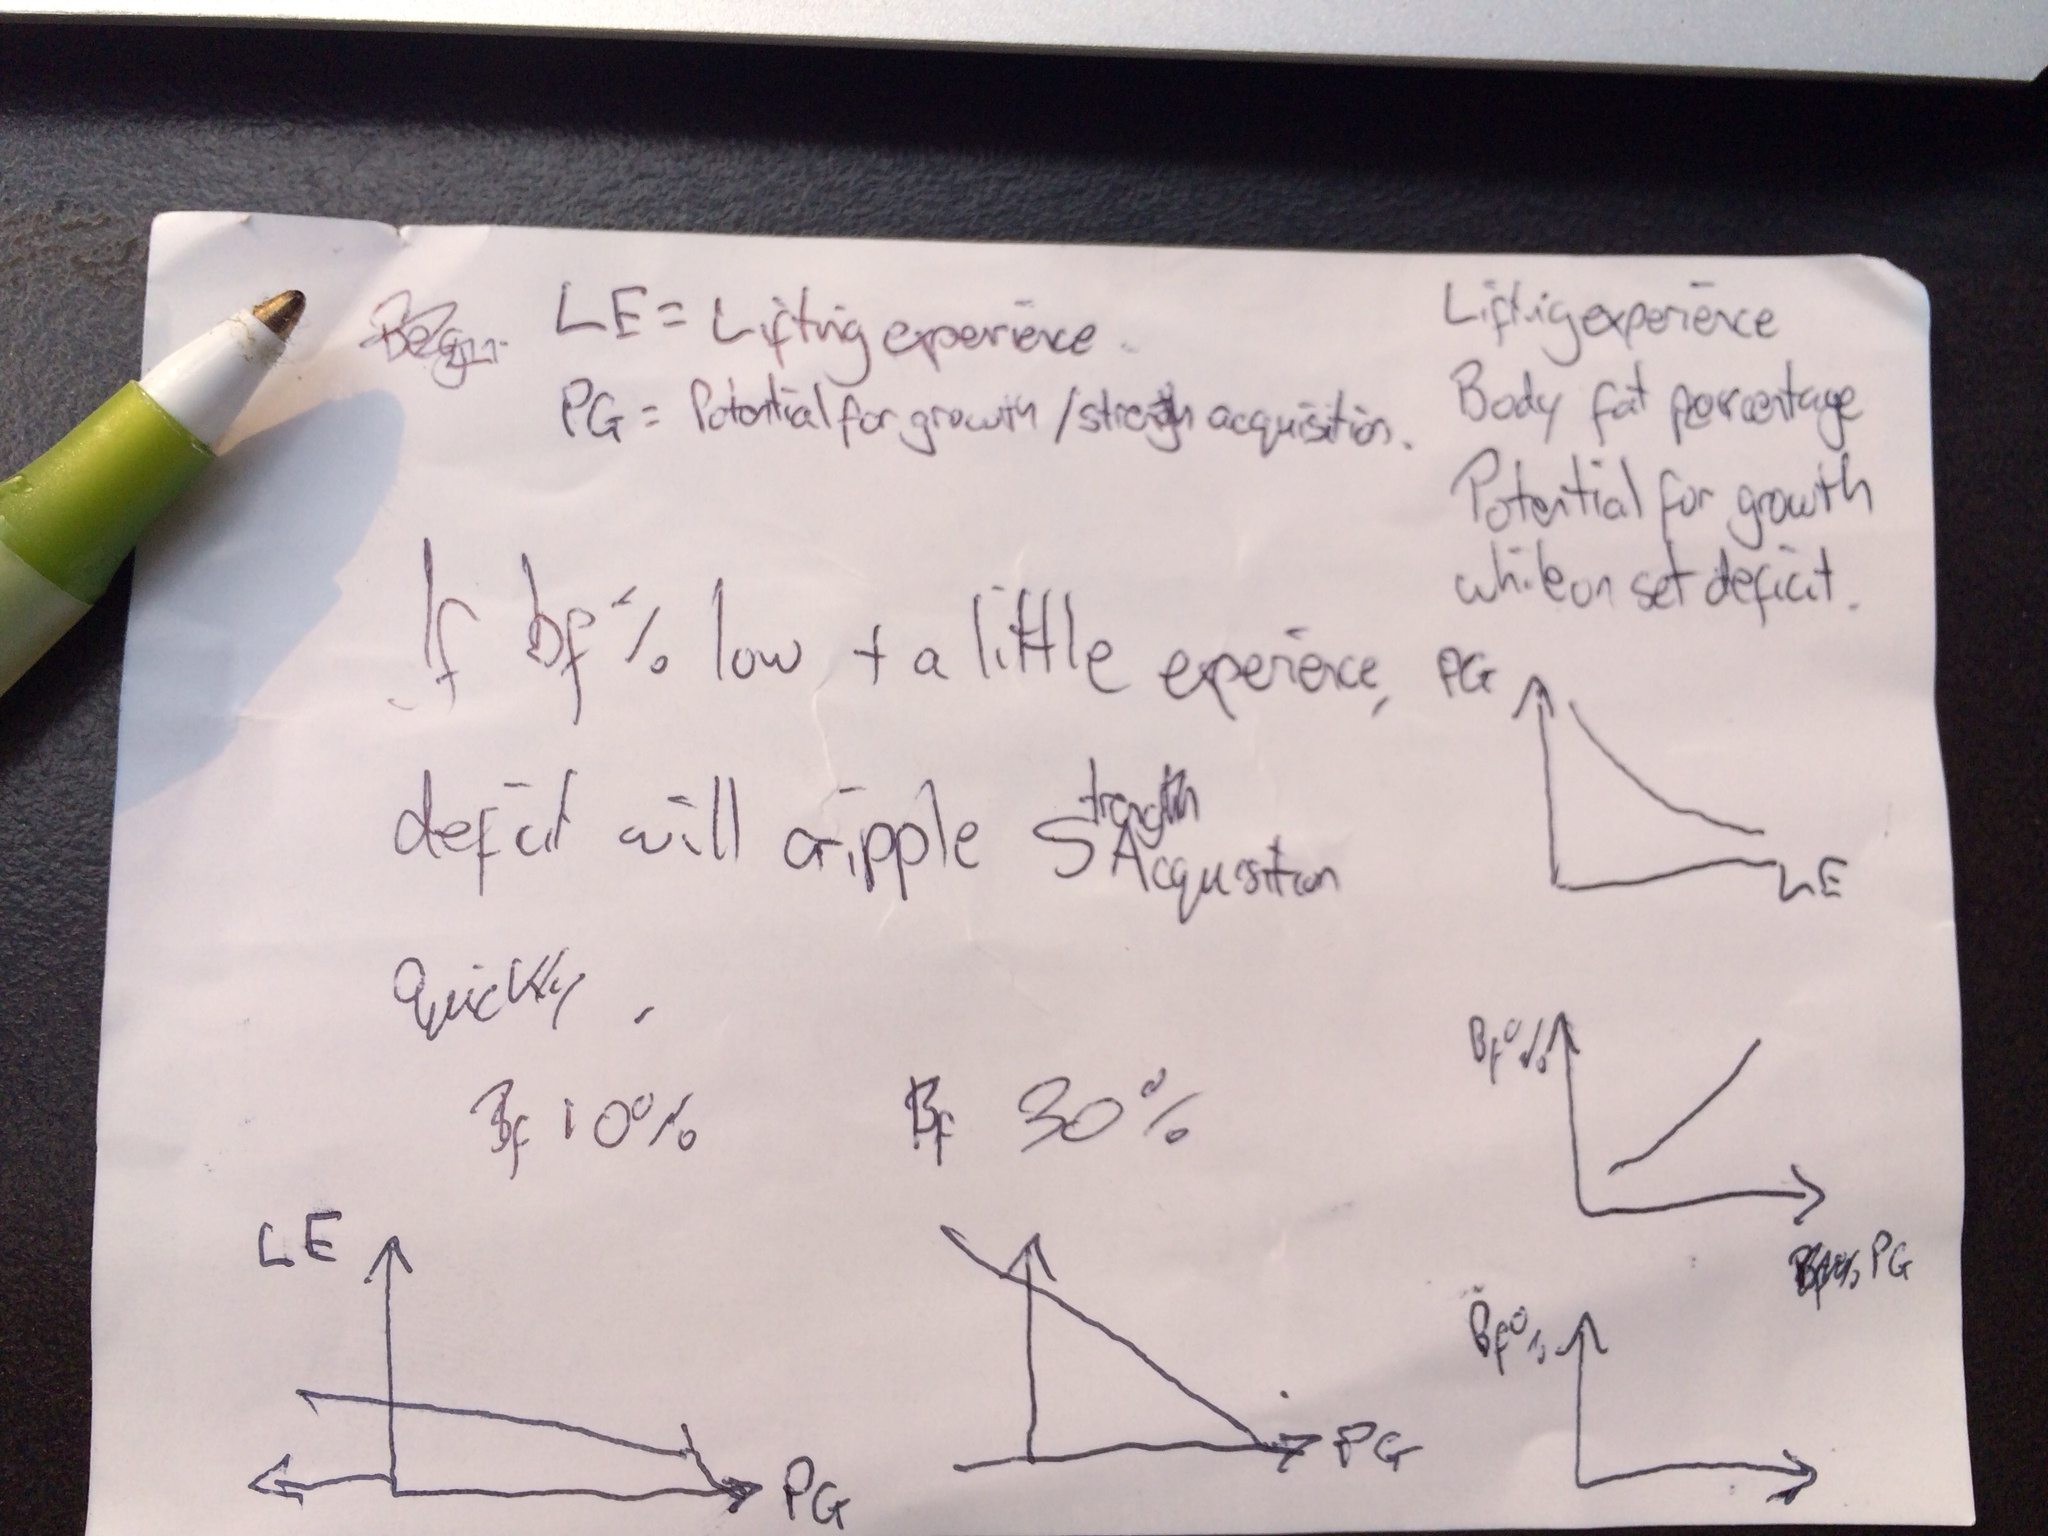 LE = Lifting experience.
PG = Potential for growth / strength acquisition.
Liftig experience
Body fat percentage
Potential for growth
while on set deficit.
If bf% low + a little experience,
deficit will cripple Strength Acquisition
Quickly.
Bf 10%
Bf 30%
PG
LE
Bf%
PG
LE
PG
PG
Bf%